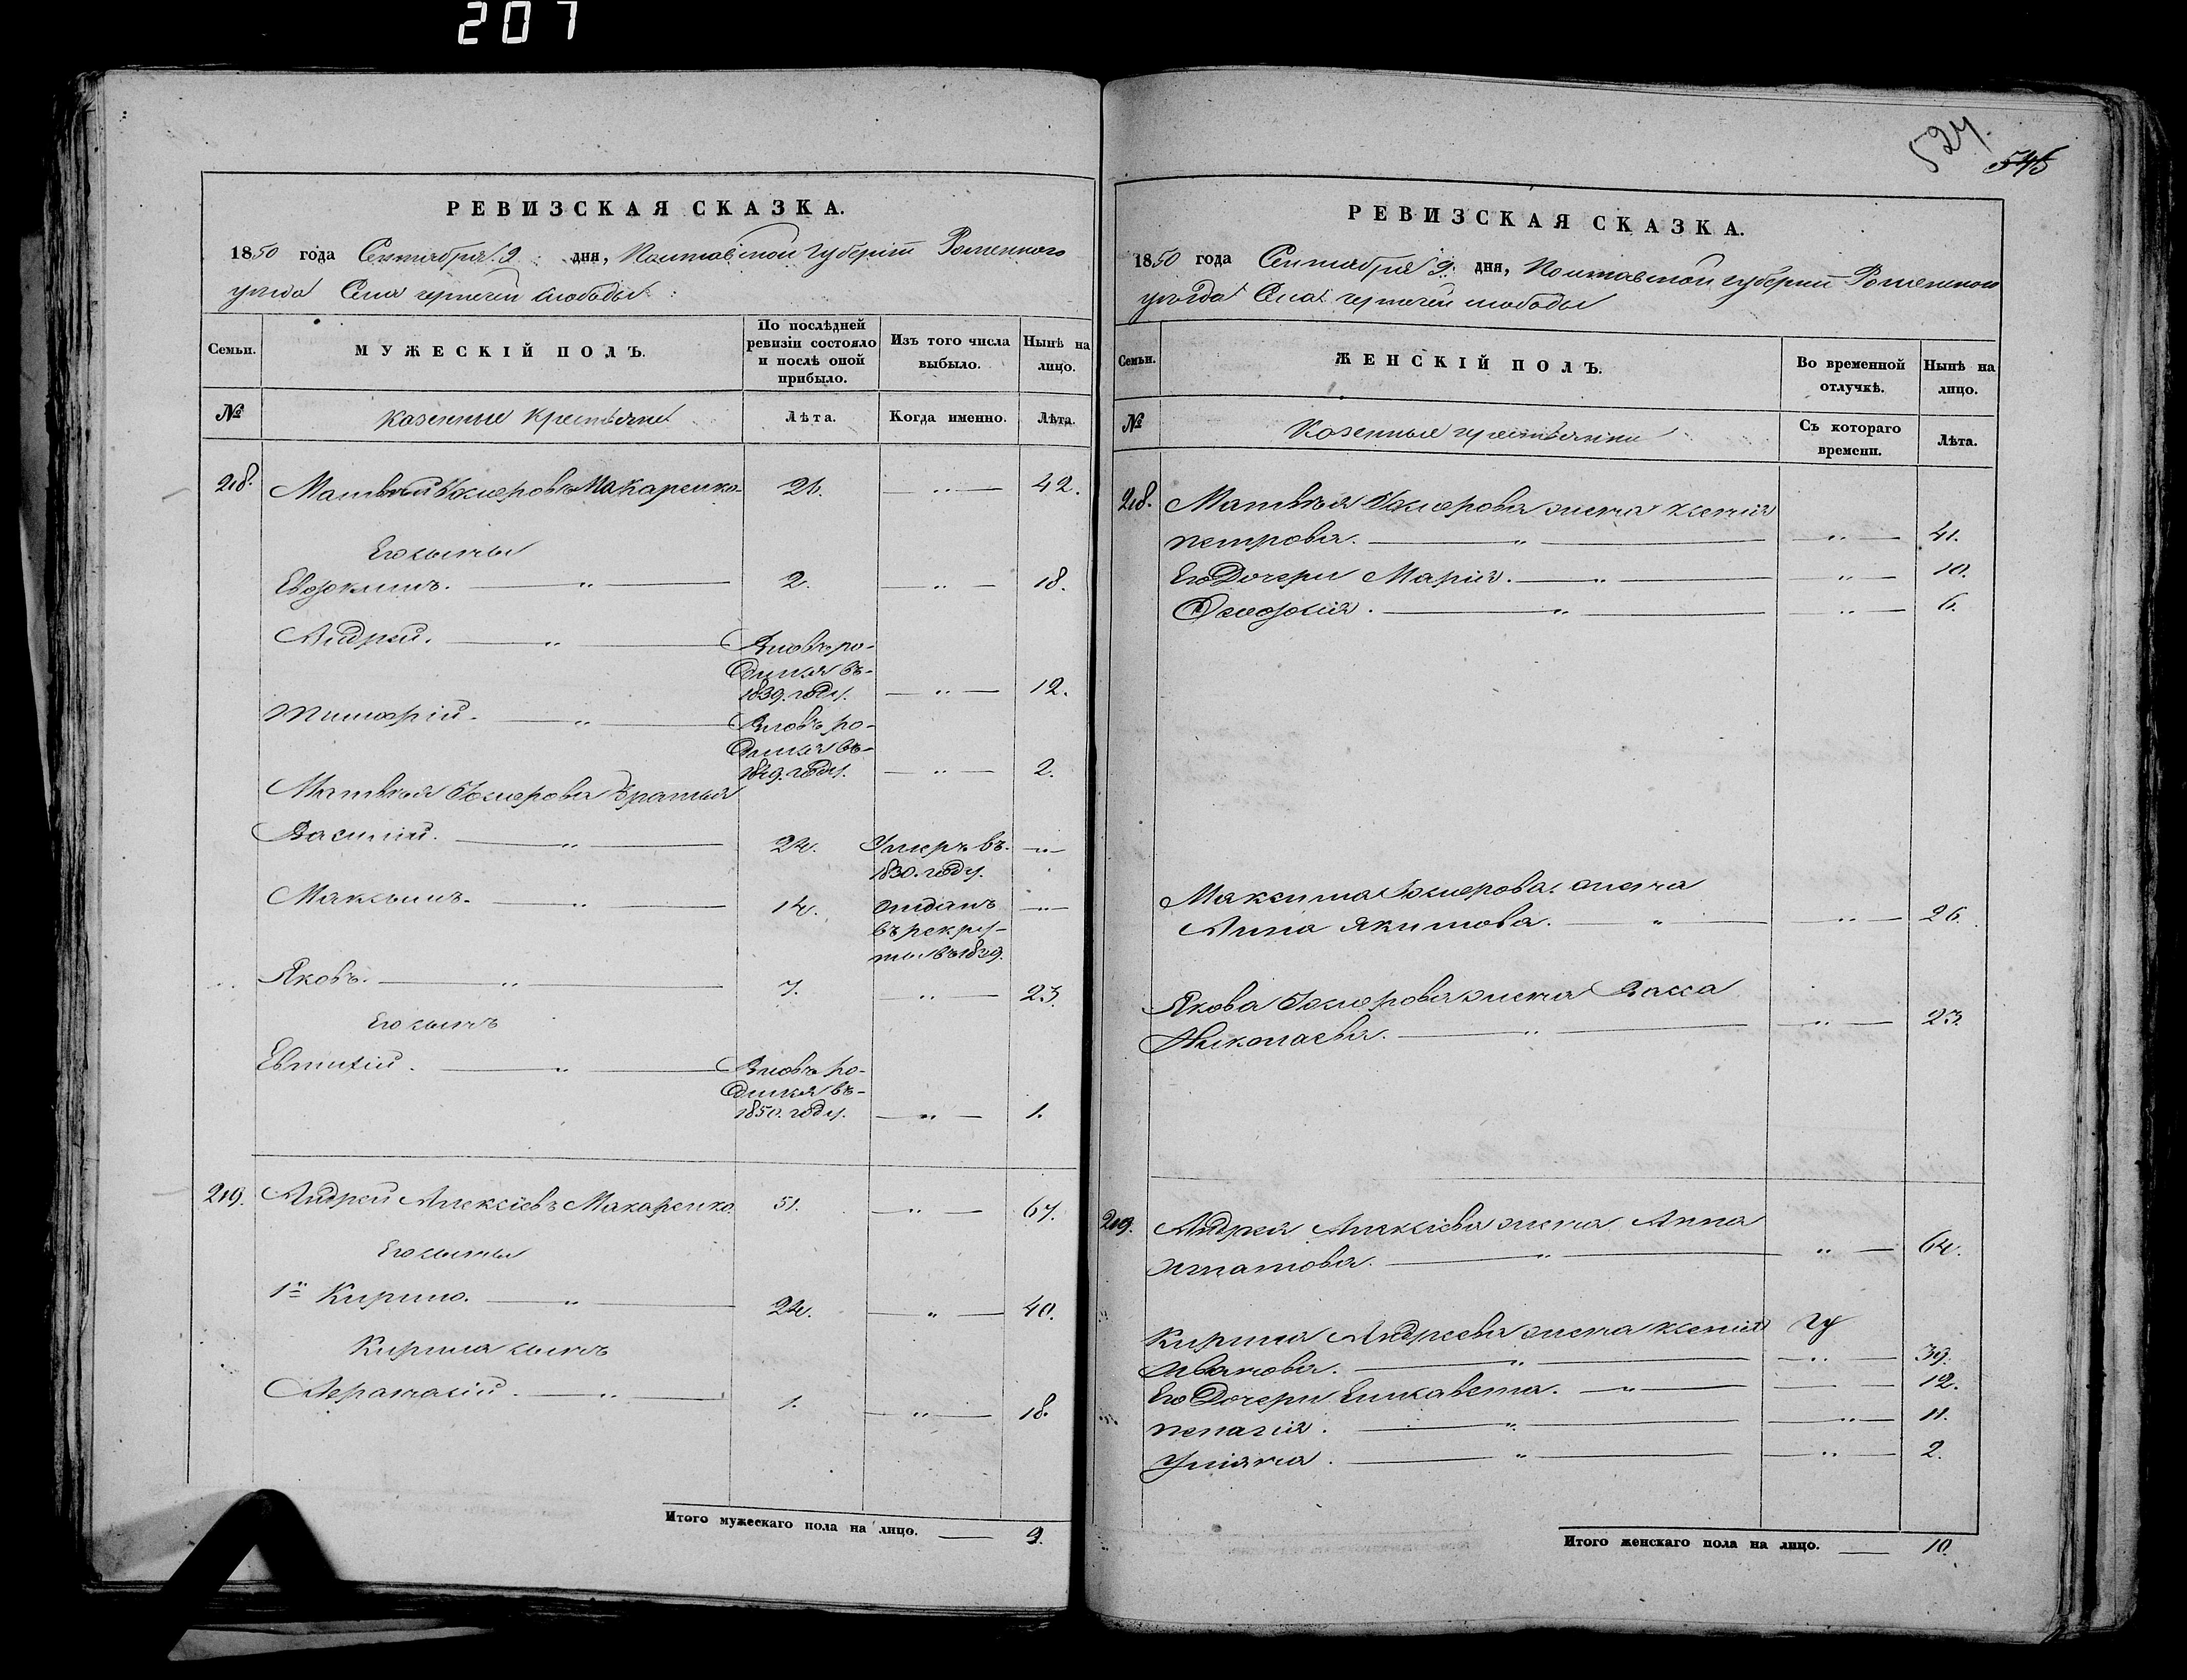 207
РЕВИЗСКАЯ СКАЗКА.
1850 года Сентября 9 дня, Полтавской губерніи Роменского
уезда Села чернечей слободы
Семьи.
МУЖЕСКІЙ ПОЛЪ.
По послѣдней
ревизіи состояло
и послѣ оной
прибыло.
Изъ того числа
выбыло.
Нынѣ на
лицо.
№
Казенные крестьяне
Лѣта.
Когда именно.
Лѣта.
218. Матвѣй Макаренко 26. 42.
Его сыны
Евдокимъ. 2. 18.
Андрей. Вновь ро-
дился въ
1839. году. 12.
Вновь ро-
дился въ
1849. году. 2.
Матвѣя братья
Василій. 24. Умеръ въ
1830. году.
Максимъ. 14. отданъ
въ рекру-
ты въ 1839.
Яковъ. 7. 23.
Его сынъ
Евтихій. Вновь ро-
дился въ
1850. году. 1.
219. Андрей Алексіевъ Макаренко. 51. 67.
Его сыны
1й Кирило. 24. 40.
Кирила сынъ
1. 18.
Итого мужескаго пола на лицо. 9.
524.
546
РЕВИЗСКАЯ СКАЗКА.
1850 года Сентября 9 дня, Полтавской губерніи Роменского
уѣзда Села чернечей слободы
Семьи.
ЖЕНСКІЙ ПОЛЪ.
Во временной
отлучкѣ.
Нынѣ на
лицо.
№
Казенные крестьянки
Съ котораго
времени.
Лѣта.
218. Матвѣя жена Ксенія
Петрова. 41.
Его Дочери Марія. 10.
Феодосія. 6.
Максима жена
Анна Якимова. 26.
Якова жена Васса
Николаева. 23.
219. Андрея Алексіева жена Анна
Игнатова. 64.
Кирила Андреева жена Ксенія
Иванова. 39.
Его Дочери Елисавета. 12.
Пелагія. 11.
Уліяна. 2.
Итого женскаго пола на лицо. 10.